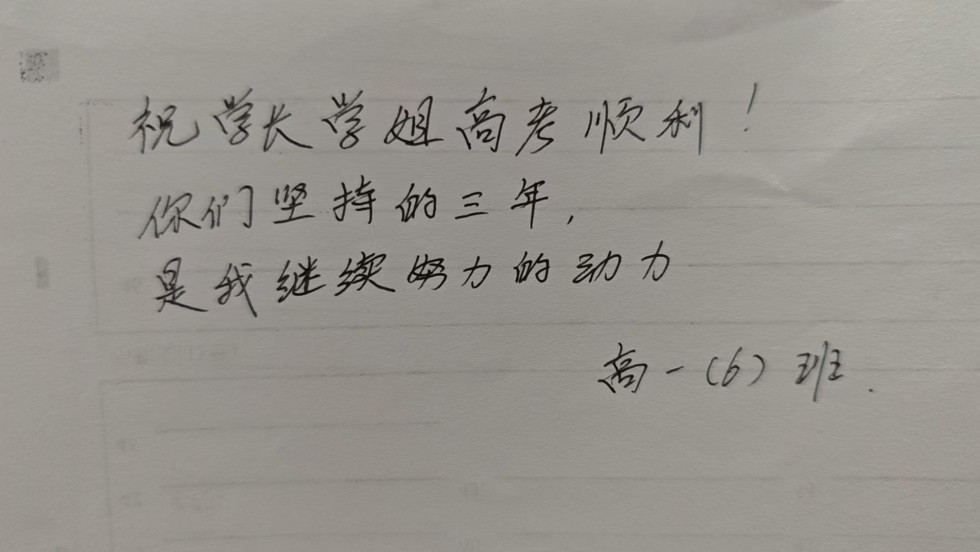 祝学长学姐高考顺利！
你们坚持的三年，
是我继续努力的动力
高一（6）班.